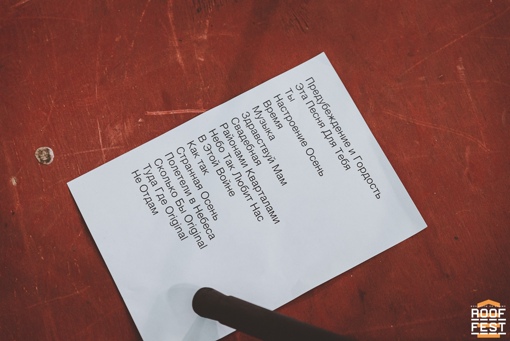 Предубеждение и Гордость
Эта Песня Для Тебя
Ты
Настроение Осень
Время
Музыка
Здравствуй Мам
Свадебная
Районами Кварталами
Небо Так Любит Нас
В Этой Войне
Как так
Странная Осень
Полетели в Небеса
Сколько Бы Original
Туда Где Original
Не Отдам
ROOF
FEST